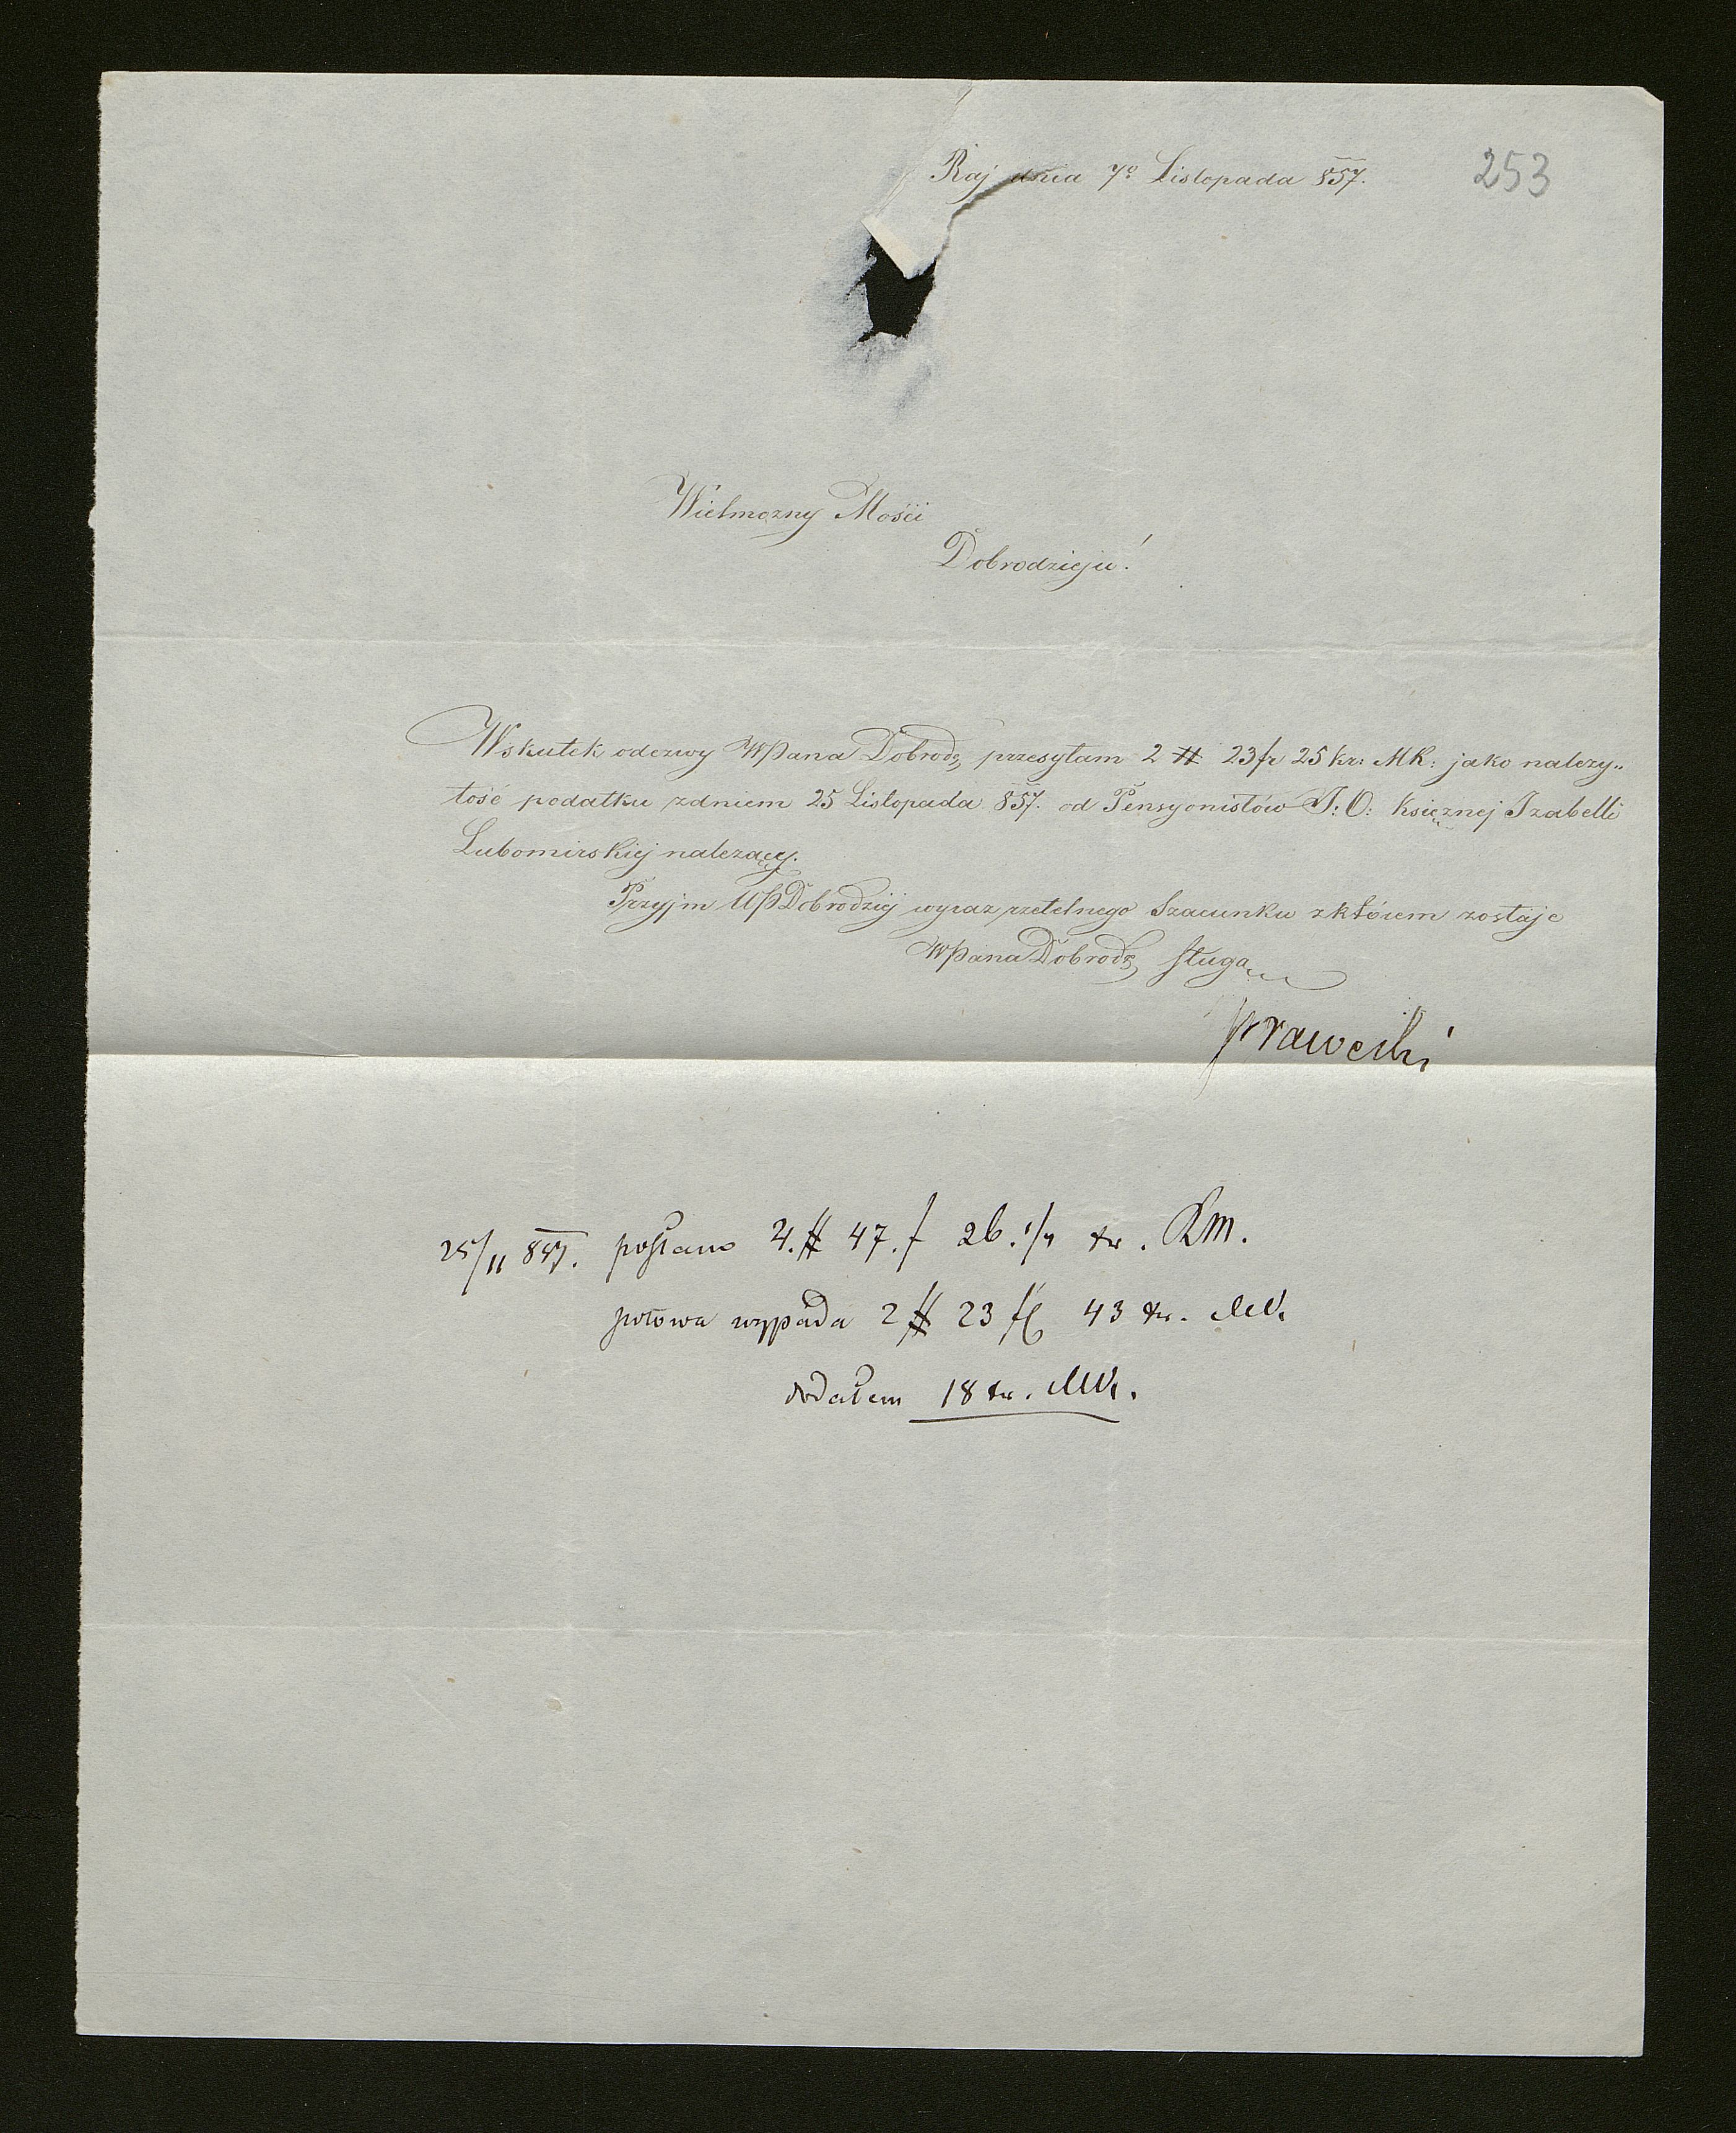 253
Raj dnia 7º Listopada 857.
Wielmozny Mości
Dobrodzieju!
Wskutek odezwy WPana Dobrodz przesyłam 2 # 23 fr 25 kr: MK: jako nalezy„
tość podatku zdniem 25 Listopada 857. od Pensyonistów J: O: Księznej Izabelli
Lubomirskiej nalezący.
Przyjm WPDobrodziej wyraz rzetelnego Szacunku zktórem zostaje
WPana Dobrodz sługa
25/11 857. posłano 4. # 47. f 26. 1/4 kr. Km.
połowa wypada 2 # 23 f 43 kr. MK.
dodałem 18 kr. MK.